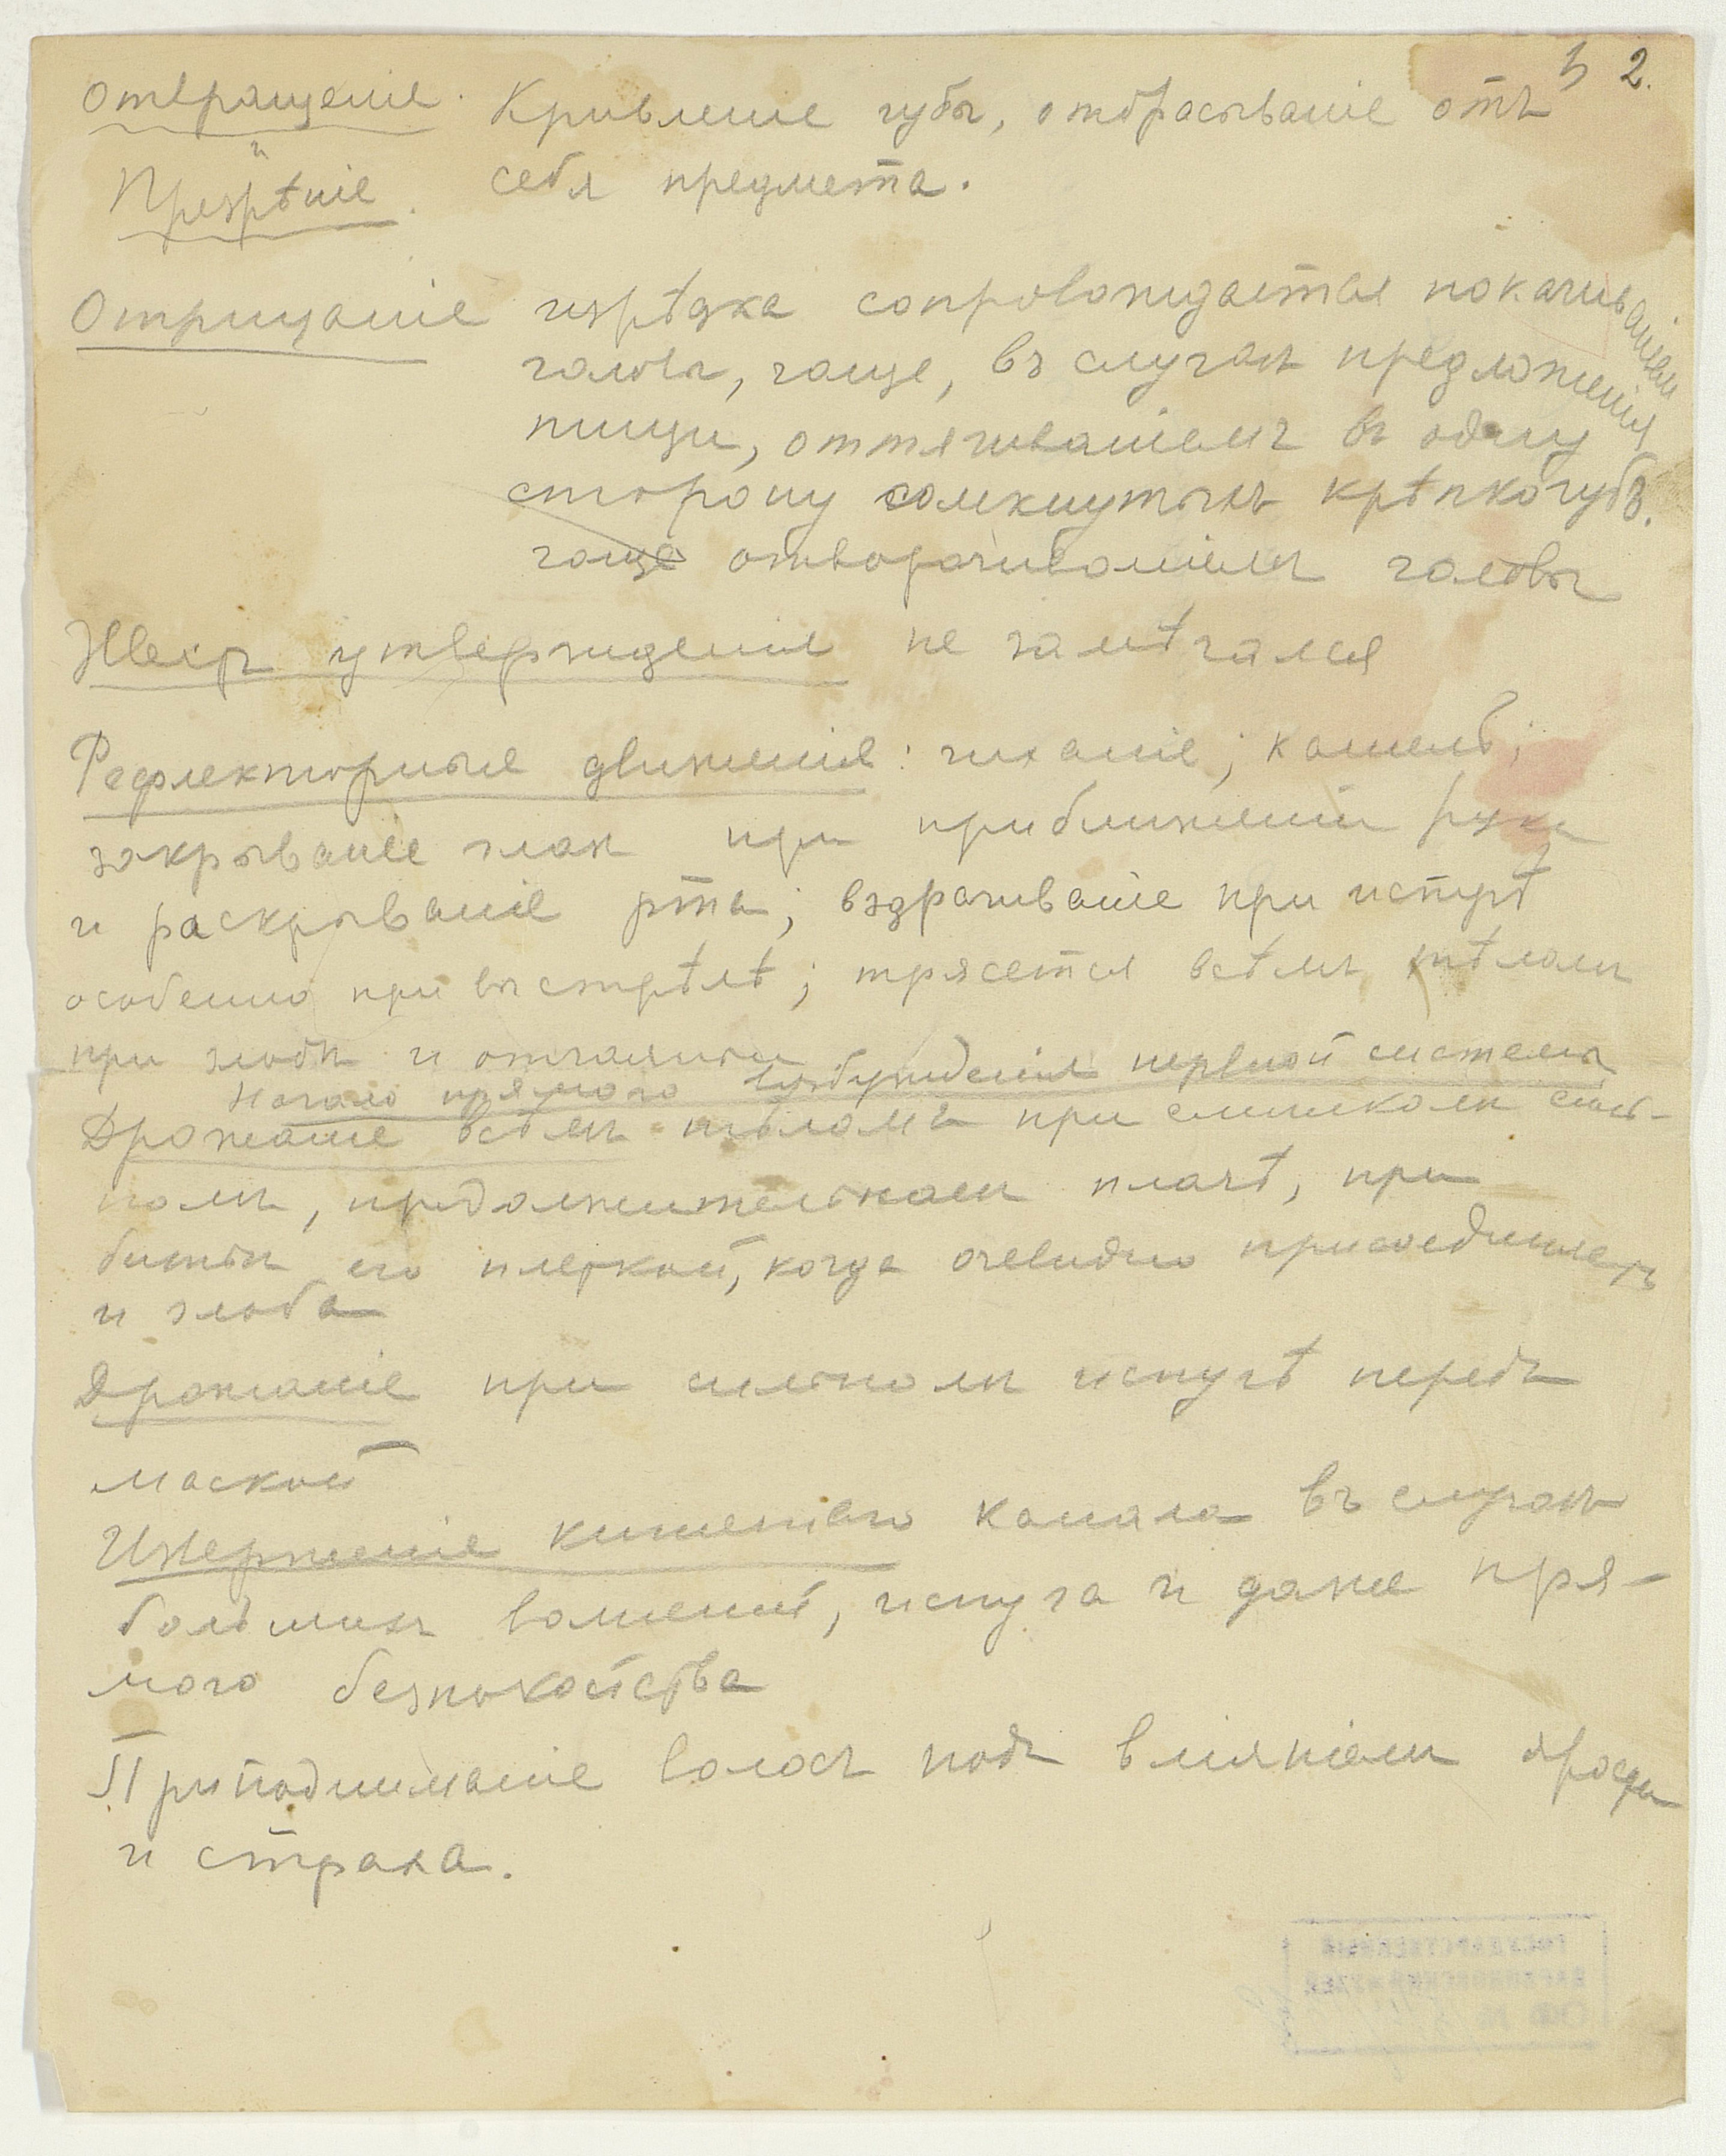 5 2.
Отвращенiе. Кривленiе губы, отбрасыванiе отъ
и
Презрѣнiе. себя предмета.
Отрицанiе изрѣдка сопровождается покачиванiемъ
головы, чаще, въ случаѣ предложенiя
пищи, оттягиванiемъ въ одну
сторону сомкнутыхъ крѣпко губъ.
чаще отворачиванiемъ головы
Жестъ утвержденiя не замѣчался
Рефлекторныя движенiя: чиханiе; кашель;
закрыванiе глазъ при приближенiи руки
и раскрыванiе рта; вздрагиванiе при испугѣ
особенно при выстрѣлѣ; трясется всѣмъ тѣломъ
при злобѣ и отчаянiи
Начало прямого возбужденiя нервной системы
Дрожанiе всѣмъ тѣломъ при слишкомъ силь-
номъ, продолжительномъ плачѣ, при
битьи его плеткой, когда очевидно присоединяется
и злоба
Дрожанiе при сильномъ испугѣ передъ
маской
Изверженiе кишечнаго канала въ случаѣ
большихъ волненiй, испуга и даже пря-
мого безпокойства
Приподниманiе волосъ подъ влiянiемъ ярости
и страха.
ГОСУДАРСТВЕННЫЙ
ДАРВИНОВСКИЙ МУЗЕЙ